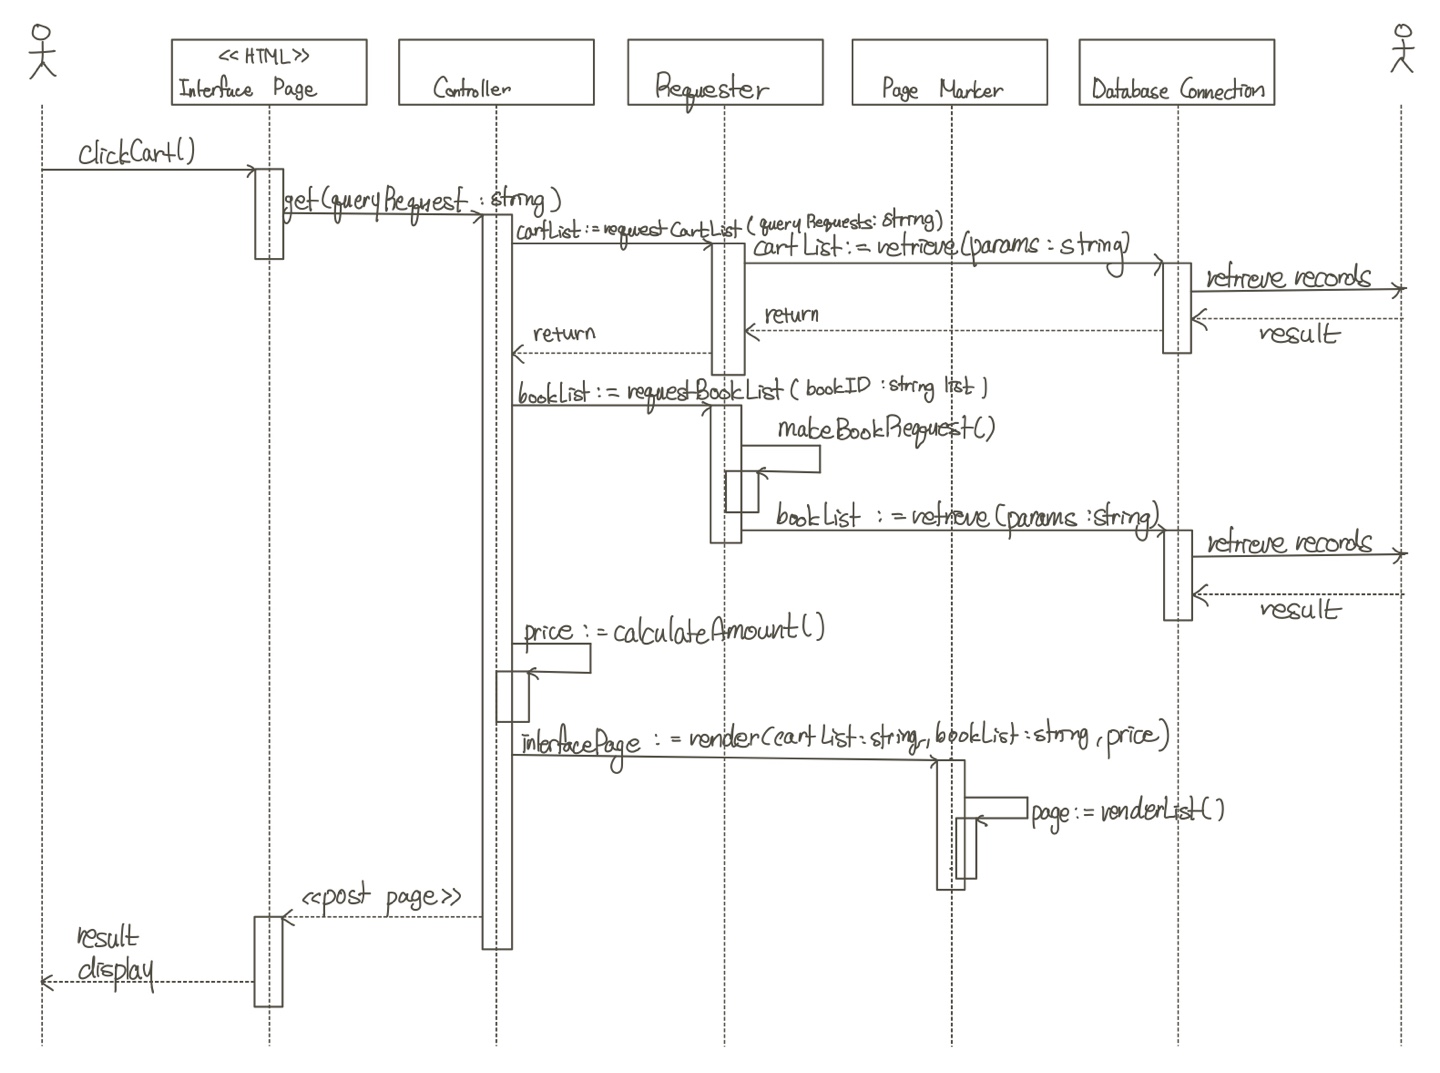 << HTML >>
Interface Page
Controller
Requester
Page Marker
Database Connection
clickCart()
get(queryRequest : string)
cartList:=requestCartList(queryRequests: string)
cartList:= retrieve(params : string)
retrieve records
return
return
result
bookList := requestBookList( bookID : string list )
makeBookRequest()
bookList := retrieve (params :string)
retrieve records
result
price := calculateAmount()
interfacePage := render(cartList:string, bookList:string, price)
page:= renderList()
<<post page>>
result
display